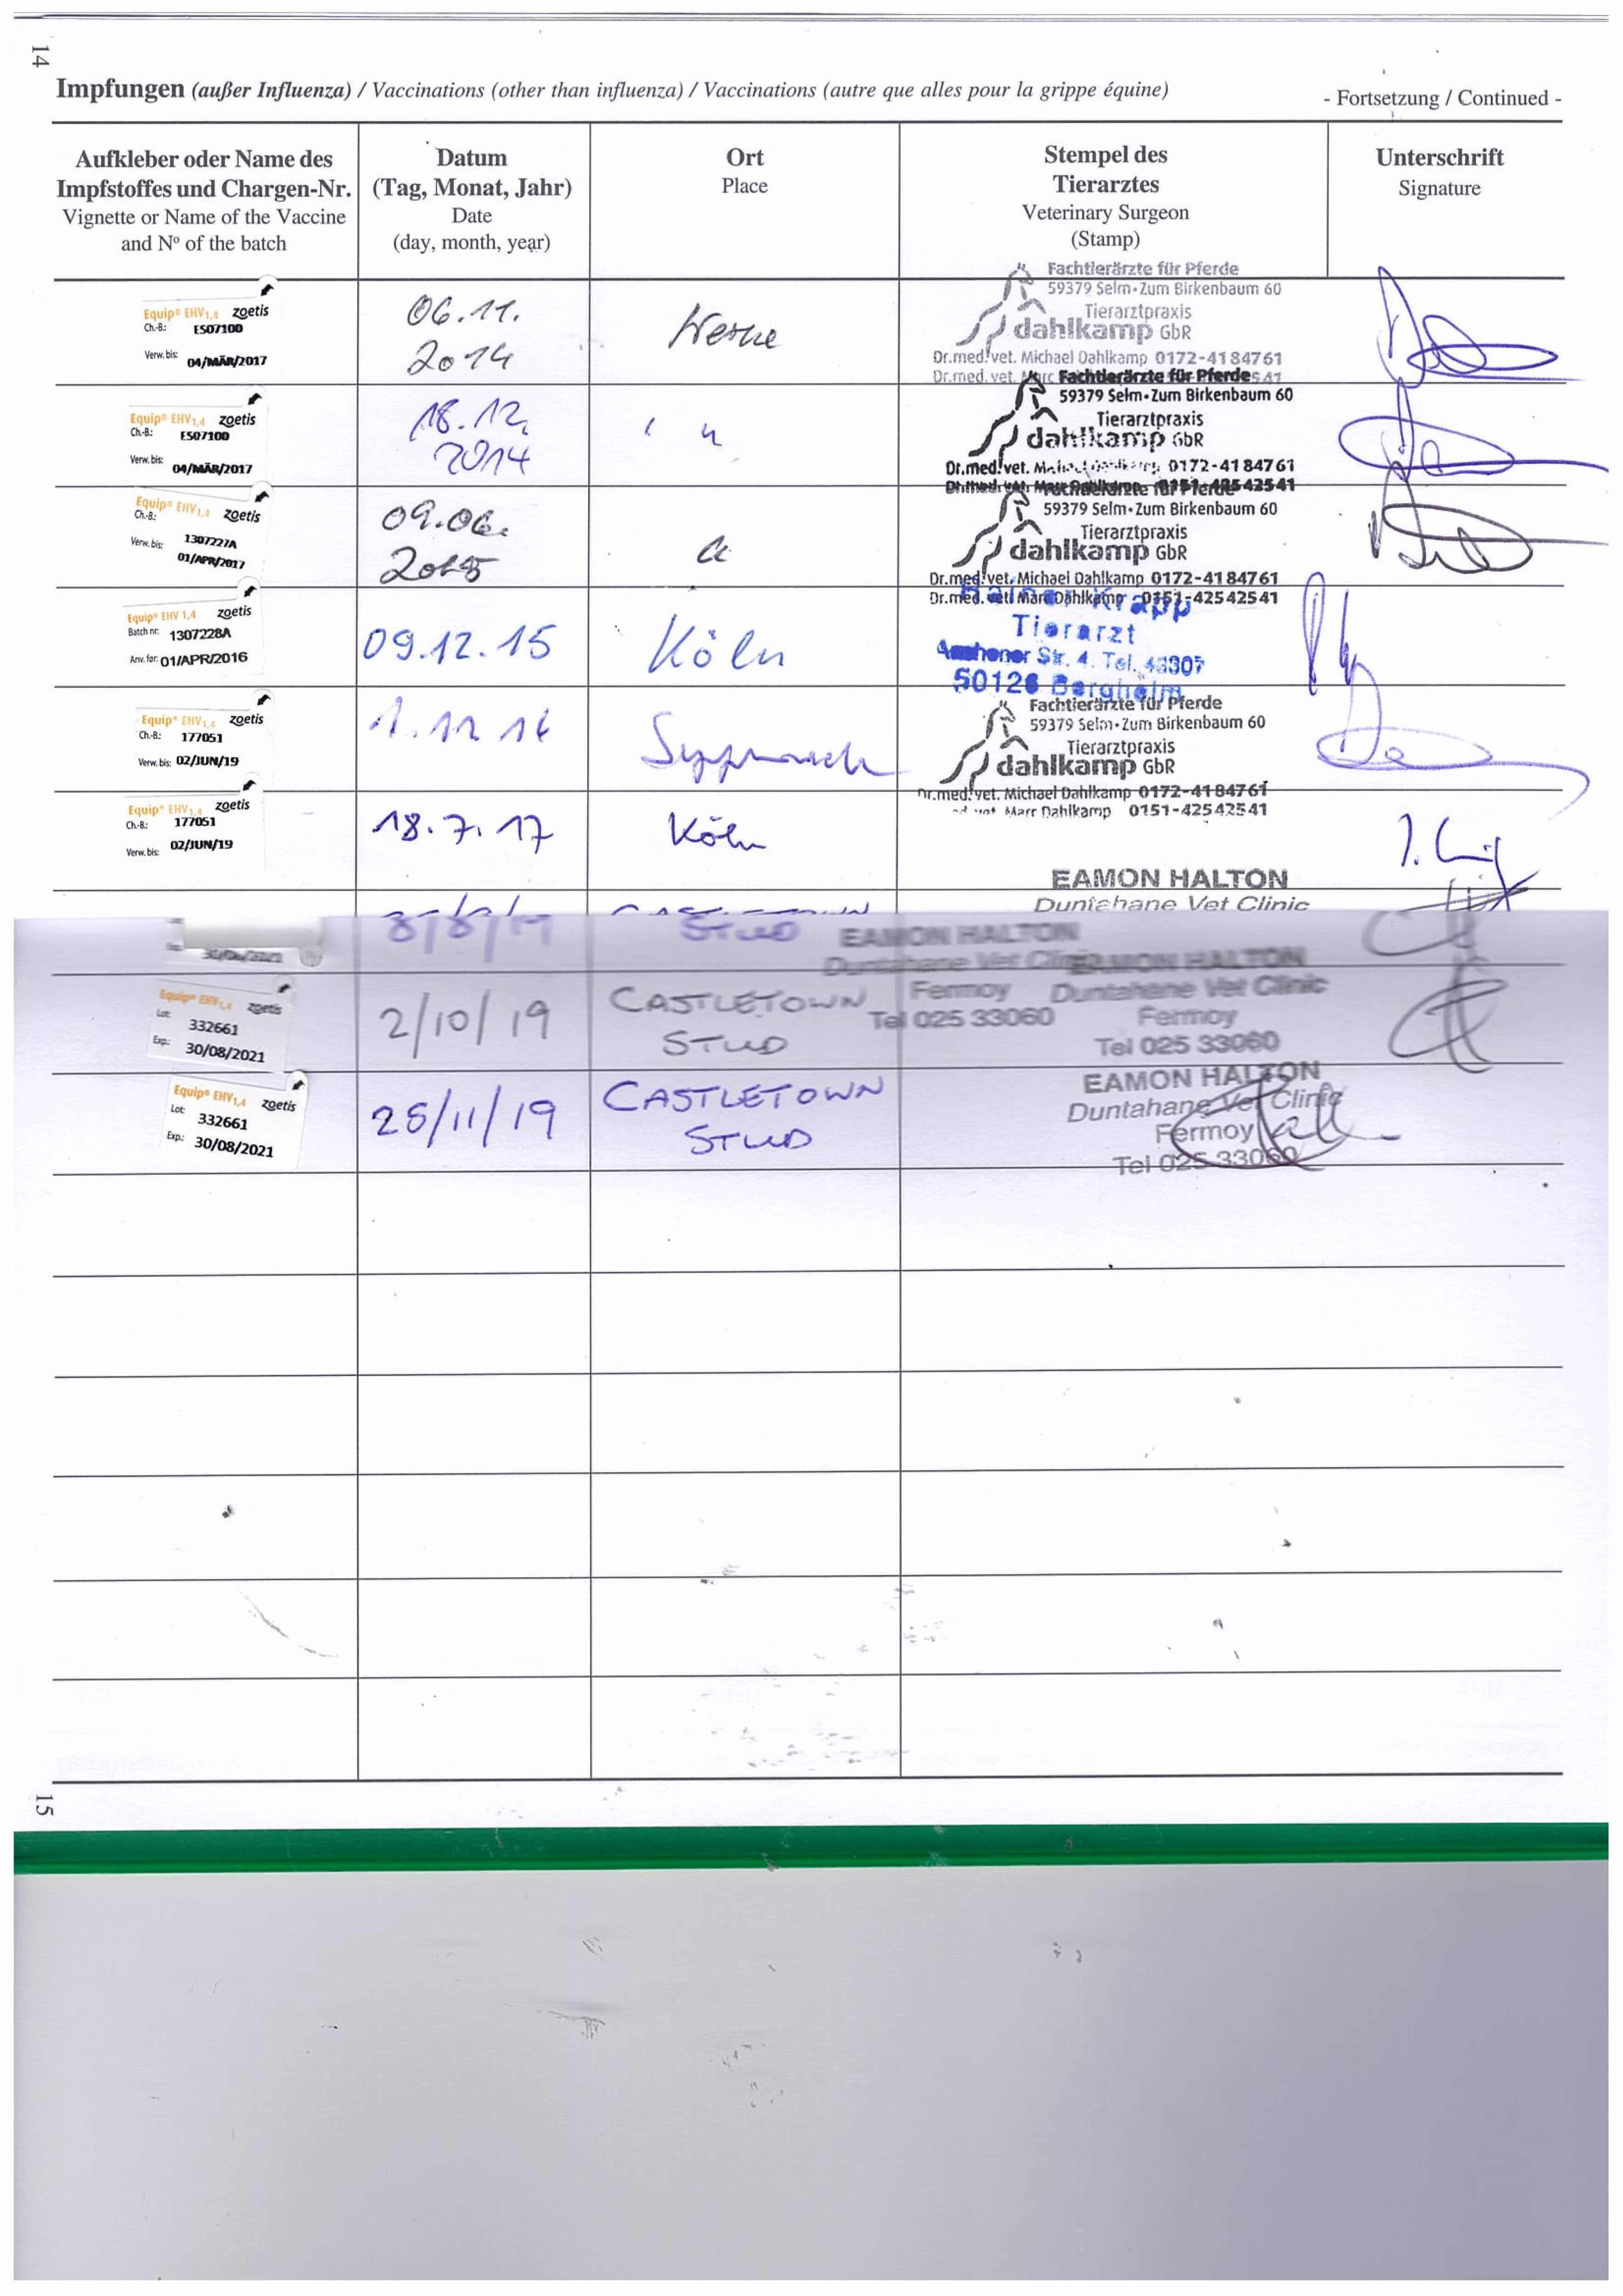 14
Impfungen (außer Influenza) / Vaccinations (other than influenza) / Vaccinations (autre que alles pour la grippe équine)
- Fortsetzung / Continued -
Aufkleber oder Name des
Impfstoffes und Chargen-Nr.
Vignette or Name of the Vaccine
and Nº of the batch
Datum
(Tag, Monat, Jahr)
Date
(day, month, year)
Ort
Place
Stempel des
Tierarztes
Veterinary Surgeon
(Stamp)
Unterschrift
Signature
Equip® EHV1,4 zoetis
Ch.-B.: ES07100
Verw. bis: 04/MÄR/2017
06.11.
2014
Werne
Fachtierärzte für Pferde
59379 Selm•Zum Birkenbaum 60
Tierarztpraxis
dahlkamp GbR
Dr.med.vet. Michael Dahlkamp 0172-4184761
Dr.med.vet. Marc
Equip® EHV1,4 zoetis
Ch.-B.: ES07100
Verw. bis: 04/MÄR/2017
18.12.
2014
Fachtierärzte für Pferde
59379 Selm•Zum Birkenbaum 60
Tierarztpraxis
dahlkamp GbR
Dr.med.vet. 0172-4184761
Equip® EHV1,4 zoetis
Ch.-B.: 1307227A
Verw. bis: 01/APR/2017
09.06.
2015
Fachtierärzte für Pferde
59379 Selm•Zum Birkenbaum 60
Tierarztpraxis
dahlkamp GbR
Dr.med.vet. Michael Dahlkamp 0172-4184761
Dr.med.vet. Marc Dahlkamp 0151-42542541
Equip® EHV 1,4 zoetis
Batch nr: 1307228A
Anv. før: 01/APR/2016
09.12.15
Köln
Krapp
Tierarzt
Aachener Str. 4. Tel. 43307
50126 Bergheim
Equip® EHV1,4 zoetis
Ch.-B.: 177051
Verw. bis: 02/JUN/19
1.12.16
Fachtierärzte für Pferde
59379 Selm•Zum Birkenbaum 60
Tierarztpraxis
dahlkamp GbR
Dr.med.vet. Michael Dahlkamp 0172-4184761
Marc Dahlkamp 0151-42542541
Equip® EHV1,4 zoetis
Ch.-B.: 177051
Verw. bis: 02/JUN/19
18.7.17
Köln
EAMON HALTON
Duntahane Vet Clinic
CASTLETOWN
STUD
30/08/2021
EAMON HALTON
Duntahane Vet Clinic
Fermoy
Tel 025 33060
Equip® EHV1,4 zoetis
Lot: 332661
Exp.: 30/08/2021
2/10/19
CASTLETOWN
STUD
EAMON HALTON
Duntahane Vet Clinic
Fermoy
Tel 025 33060
Equip® EHV1,4 zoetis
Lot: 332661
Exp.: 30/08/2021
25/11/19
CASTLETOWN
STUD
EAMON HALTON
Duntahane Vet Clinic
Fermoy
Tel 025 33060
15